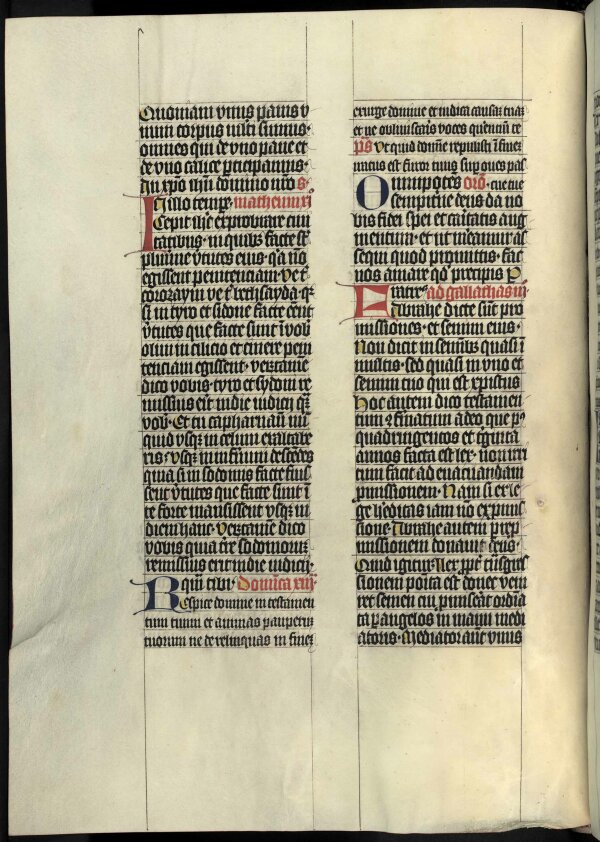 Quoniam vnus panis v
num corpus multi sumus·
omnes qui de vno pane et
de vno calice participamus·
In xpo ihu domino nro s
In illo tempe· matheum xi
Cepit ihc exprobrare ciui
tatibus· in quibus facte st
plurime vtutes eius qa no
egissent penitenciam· Ve t
corozaym ve t bethsayda· q
si in tyro et sidone facte cent
vtutes que facte sunt i vob
olim in cilicio et cinere peni
tenciam egissent· Veritame
dico vobis· tyro et sydoni re
missius erit indie iudicij q
vob· Et tu capharnau nu
quid vsq in celum exaltabe
ris· vsq in infernu descedes
quia si in sodomis facte fuis
sent vtutes que facte sunt i
te forte mansissent vsq in
diem hanc· Veritame dico
vobis quia tre sodomorum
remissius erit indie iudicij·
Dominica xiij
Respice domine in testamen
tum tuum et animas pauperu
tuorum ne derelinquas in fine
exurge domine et iudica causam tuam
et ne obliuiscaris voces querenciu te
ps Vt quid domine repulisti i fine
iratus est furor tuus sup oues pas
Omnipotes oro· cue tue
sempiterne deus da no
bis fidei spei et caritatis aug
mentum· et ut mereamur as
sequi quod promittis· fac
nos amare qd precipis P
Fratres· ad gallathas iij
Abrahe dicte sut pro
missiones· et semini eius·
Non dicit in seminibus quasi i
multis· sed quasi in vno et
semini tuo qui est xpistus
hoc autem dico testamen
tum 9firmatum adeo que p9
quadringentos et triginta
annos facta est lex· non irri
tum facit ad euacuandam
promissionem· Nam si ex le
ge hereditas iam no ex promis
sione· Abrahe autem p rep
missionem donauit deus·
Quid igitur· lex ppt tnsgres
sionem posita est donec veni
ret semen cui promiserat ordina
ta p angelos in manu medi
atoris· Mediator aut vnius